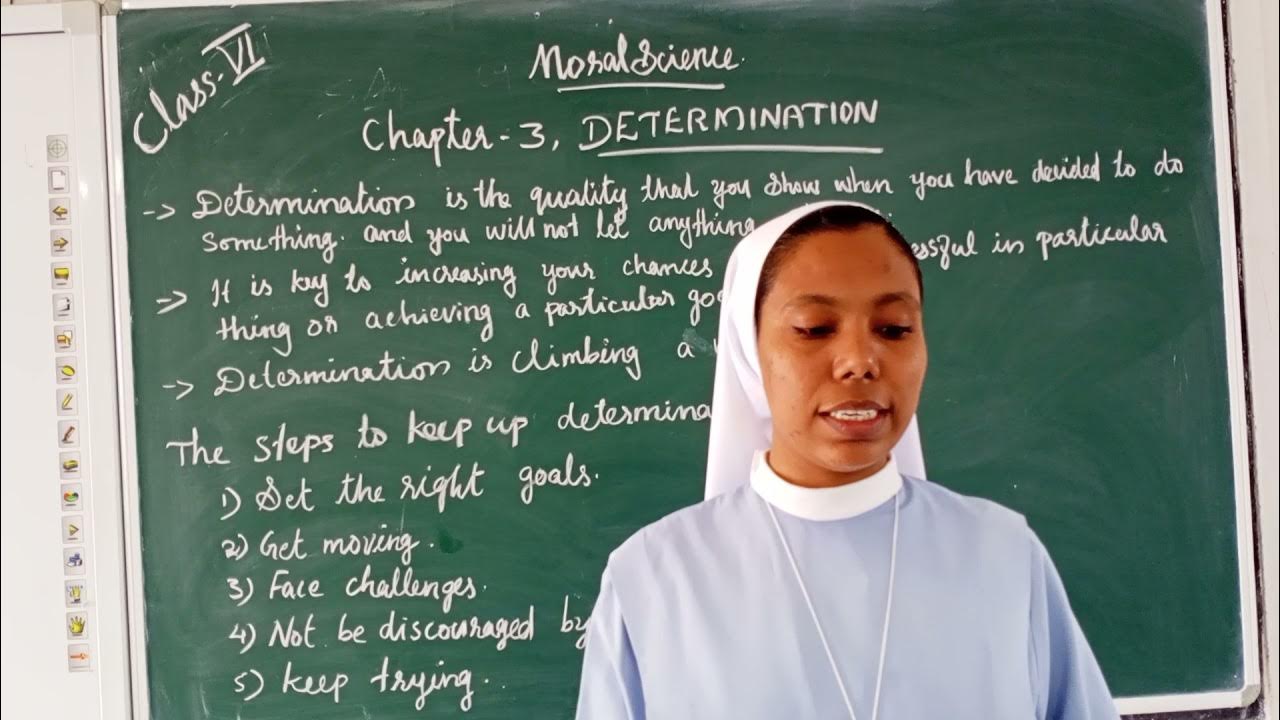 Class-VI
Moral Science.
Chapter-3, DETERMINATION
-> Determination is the quality that you show when you have decided to do
something. and you will not let anything
-> It is key to increasing your chances essful in particular
thing or achieving a particular go
-> Determination is climbing a
The steps to keep up determina
1) Set the right goals.
2) Get moving.
3) Face challenges.
4) Not be discouraged by
5) keep trying.